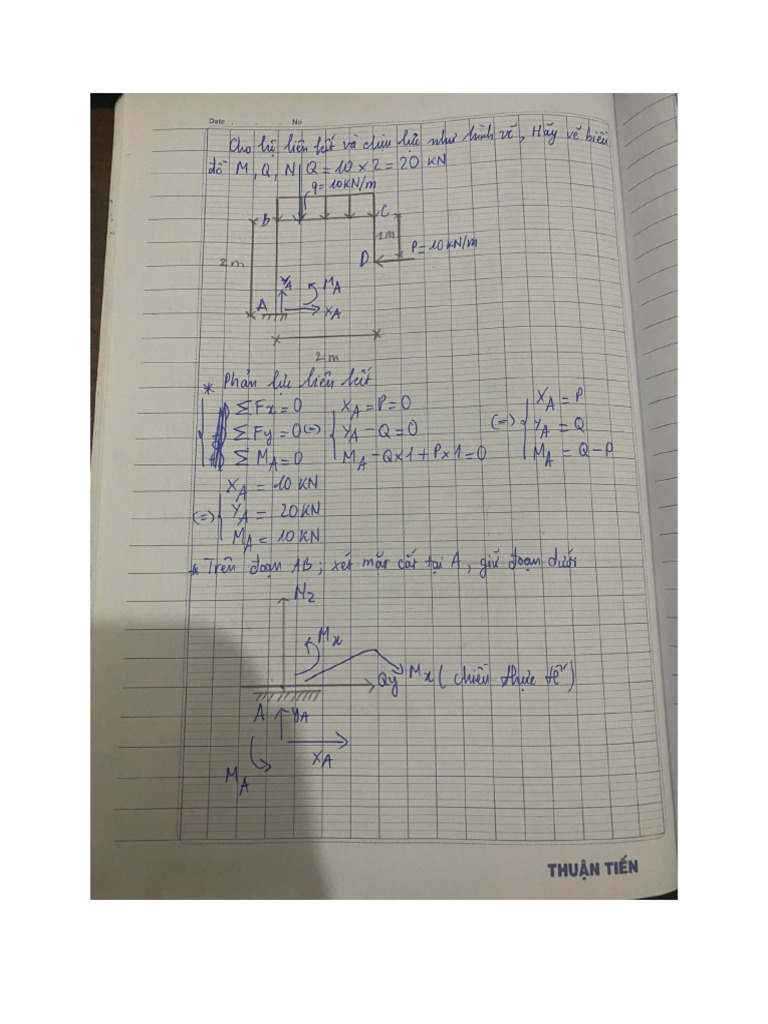 Date No
Cho hệ liên kết và chịu lực như hình vẽ, Hãy vẽ biểu
đồ M, Q, N Q = 10 x 2 = 20 KN
q = 10KN/m
B C
1m
2m D P = 10 KN/m
YA MA
A XA
2m
* Phản lực liên kết
ΣFx = 0 XA = P = 0 XA = P
ΣFy = 0 (=) YA - Q = 0 (=) YA = Q
ΣMA = 0 MA - Qx1 + Px1 = 0 MA = Q - P
XA = 10 KN
(=) YA = 20 KN
MA = 10 KN
* Trên đoạn AB; xét mặt cắt tại A, giữ đoạn dưới
Nz
Mx
Qy Mx (chiều thực tế)
A YA
XA
MA
THUẬN TIẾN